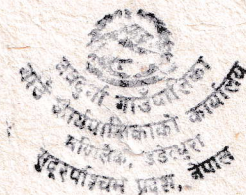 नवदुर्गा गाउँपालिका
गाउँ कार्यपालिकाको कार्यालय
मणिलेक, डडेल्धुरा
सुदूरपश्चिम प्रदेश नेपाल